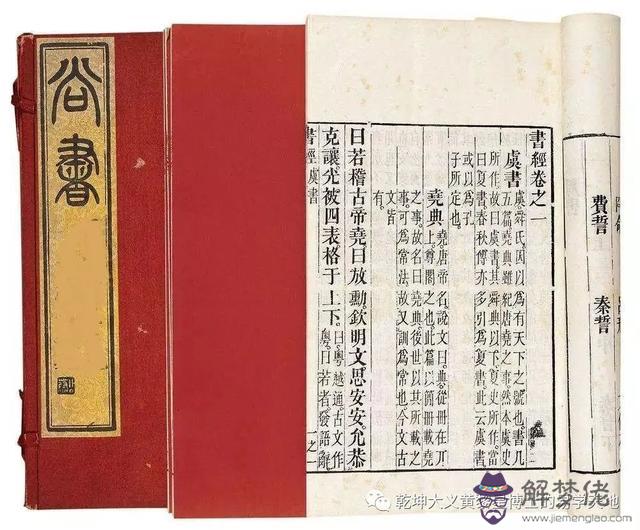 尚書
書經卷之一
虞書
虞舜氏因以爲有天下之號也書凡
五篇堯典雖紀唐堯之事然本虞史
所作故曰虞書其舜典以下夏史所作當
曰夏書春秋傳亦多引爲夏書此云虞書
或以爲孔
子所定也
堯典
堯唐帝名說文曰典從冊在丌
上尊閣之也此篇以簡冊載堯
之事故名曰堯典後世以其所載之
事可爲常法故又訓爲常也今文古
文皆
有
曰若稽古帝堯曰放勳欽明文思安安允恭
克讓光被四表格于上下
曰粵越通古文作
粵曰若者發語辭
書經虞書
一之一
費誓
秦誓
乾坤大义黄
博士的
学天地
解梦佬
www.jiemenglao.com